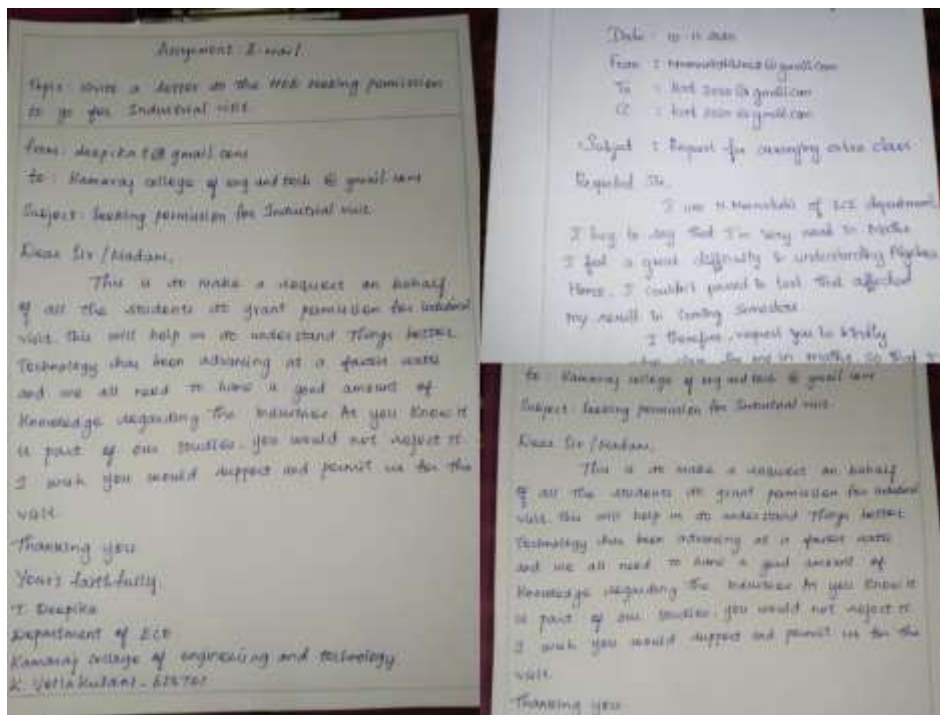 Assignment E-mail
Topic: Write a letter to the HOD seeking permission
to go for Industrial visit
from: deepika t@gmail.com
to: Kamaraj college of eng and tech @ gmail.com
Subject: Seeking permission for Industrial visit.
Dear Sir/Madam,
This is to make a request on behalf
of all the students to grant permission for industrial
visit. this will help us to understand Things better
Technology has been advancing at a faster rate
and we all need to have a good amount of
Knowledge regarding The Industries As you Know it
is part of our studies. you would not reject it.
I wish you would support and permit us for the
visit.
Thanking you
Yours faithfully,
T. Deepika
Department of ECE
Kamaraj college of engineering and technology
K. Vellakulam - 625701
Date :
From : @gmail.com
To : hod 2020 @ gmail.com
CC : hod 2020 @ gmail.com
Subject : Request for arranging extra class
Respected Sir,
I am of ECE department,
I beg to say that I'm very weak in Maths
I feel a great difficulty in understanding Algebra
Hence, I couldn't passed in last that affected
my result in coming semesters
I therefore, request you to kindly
class for me in maths, so that
to: Kamaraj college of eng and tech @ gmail.com
Subject: Seeking permission for Industrial visit.
Dear Sir/Madam,
This is to make a request on behalf
of all the students to grant permission for industrial
visit. this will help us to understand Things better
Technology has been advancing at a faster rate
and we all need to have a good amount of
Knowledge regarding The Industries As you Know it
is part of our studies. you would not reject it.
I wish you would support and permit us for the
visit.
Thanking you